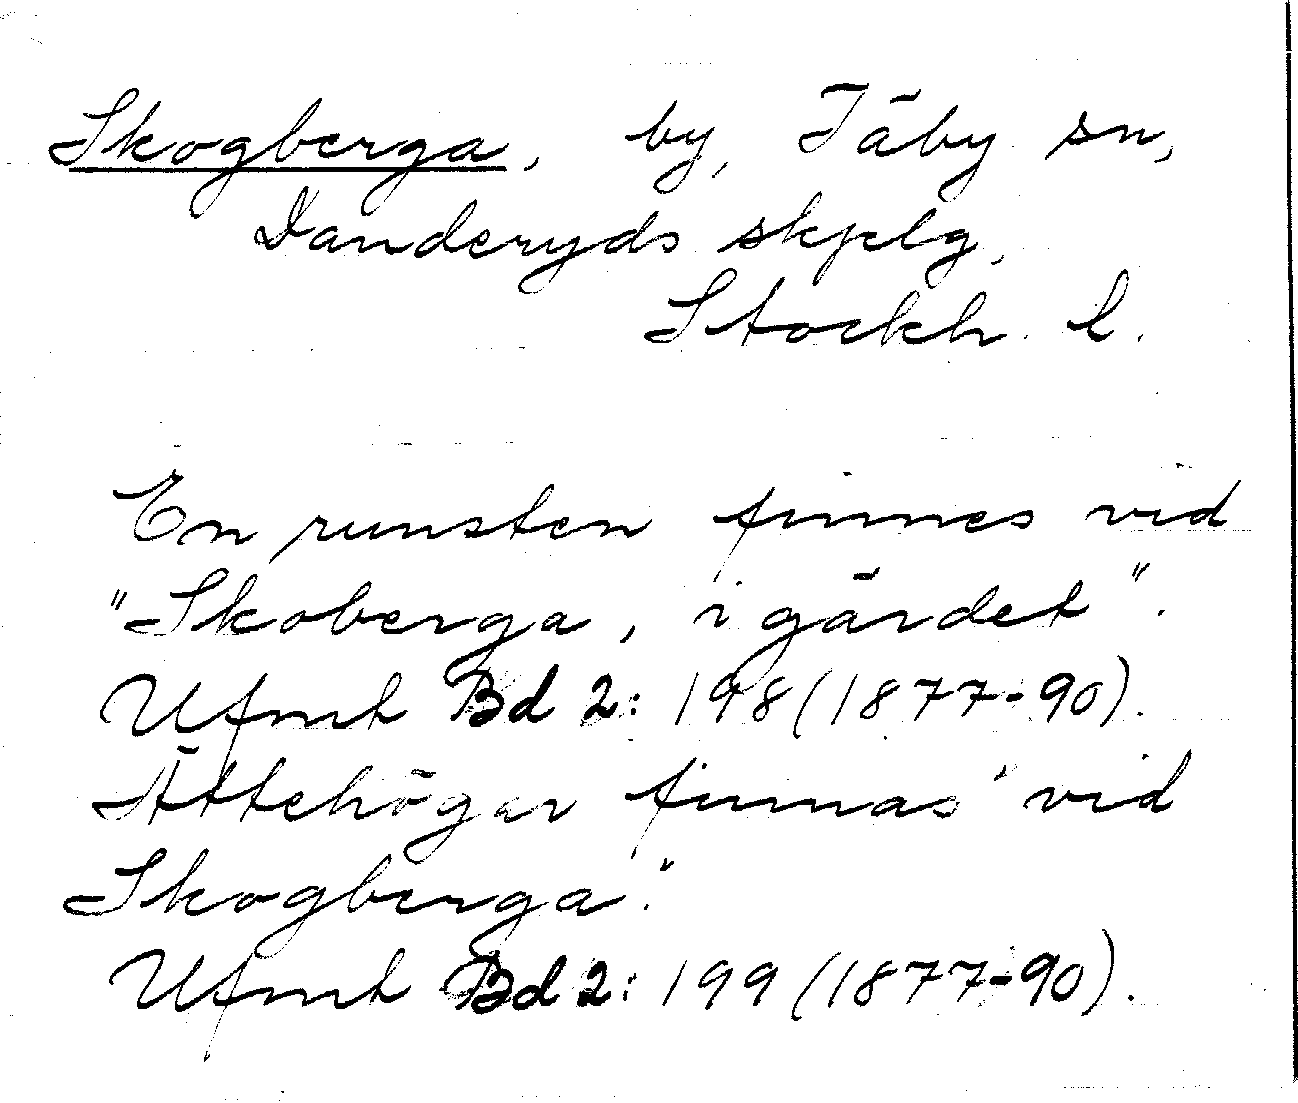 Skogberga, by, Täby sn,
Danderyds skplg,
Stockh. l.
En runsten finnes vid
"Skoberga, i gärdet".
Ufmt Bd 2: 198 (1877-90).
Ättehögar finnas "vid
Skogberga."
Ufmt Bd 2: 199 (1877-90).